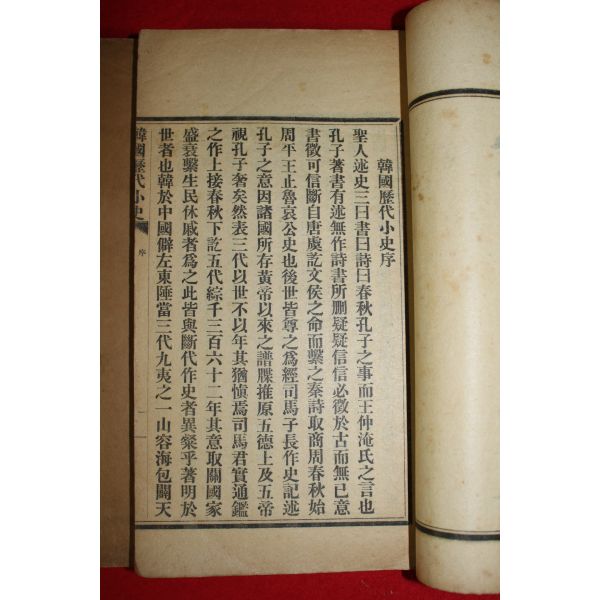 韓國歷代小史序
聖人述史三曰書曰詩曰春秋孔子之事而王仲淹氏之言也
孔子著書有述無作詩書所刪疑疑信信必徵於古而無已意
書徵可信斷自唐虞訖文侯之命而繫之秦詩取商周春秋始
周平王止魯哀公史也後世皆尊之爲經司馬子長作史記述
孔子之意因諸國所存黃帝以來之譜牒推原五德上及五帝
視孔子奢矣然表三代以世不以年其猶愼焉司馬君實通鑑
之作上接春秋下訖五代綜千三百六十二年其意取關國家
盛衰繫生民休戚者爲之此皆與斷代作史者異粲乎著明於
世者也韓於中國僻左東陲當三代九夷之一山容海包闢天
韓國歷代小史
序
一